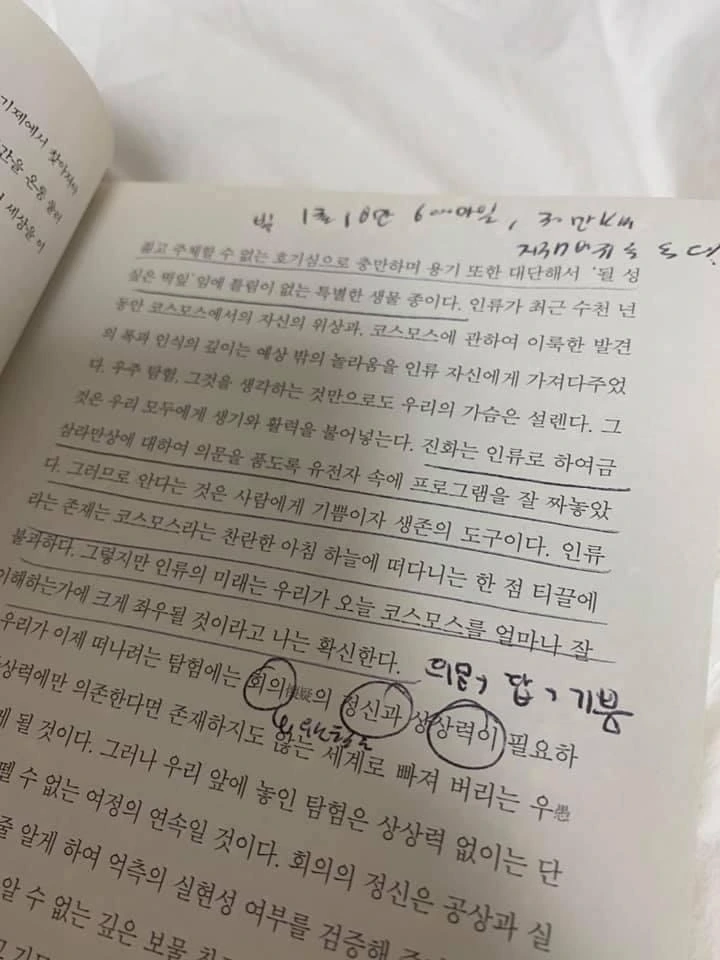 기제에서 찾아져야
간을 온통 둘러
세상을 이
빛 1초 18만 6000마일, 30만 km
지구 7바퀴를 돈다!
젊고 주체할 수 없는 호기심으로 충만하며 용기 또한 대단해서 '될 성
싶은 떡잎'임에 틀림이 없는 특별한 생물 종이다. 인류가 최근 수천 년
동안 코스모스에서의 자신의 위상과, 코스모스에 관하여 이룩한 발견
의 폭과 인식의 깊이는 예상 밖의 놀라움을 인류 자신에게 가져다주었
다. 우주 탐험, 그것을 생각하는 것만으로도 우리의 가슴은 설렌다. 그
것은 우리 모두에게 생기와 활력을 불어넣는다. 진화는 인류로 하여금
삼라만상에 대하여 의문을 품도록 유전자 속에 프로그램을 잘 짜놓았
다. 그러므로 안다는 것은 사람에게 기쁨이자 생존의 도구이다. 인류
라는 존재는 코스모스라는 찬란한 아침 하늘에 떠다니는 한 점 티끌에
불과하다. 그렇지만 인류의 미래는 우리가 오늘 코스모스를 얼마나 잘
이해하는가에 크게 좌우될 것이라고 나는 확신한다.
의문, 답, 기쁨
우리가 이제 떠나려는 탐험에는 회의懷疑의 정신과 상상력이 필요하
상상력에만 의존한다면 존재하지도 않는 세계로 빠져 버리는 우愚
게 될 것이다. 그러나 우리 앞에 놓인 탐험은 상상력 없이는 단
뗄 수 없는 여정의 연속일 것이다. 회의의 정신은 공상과 실
줄 알게 하여 억측의 실현성 여부를 검증해
알 수 없는 깊은 보물